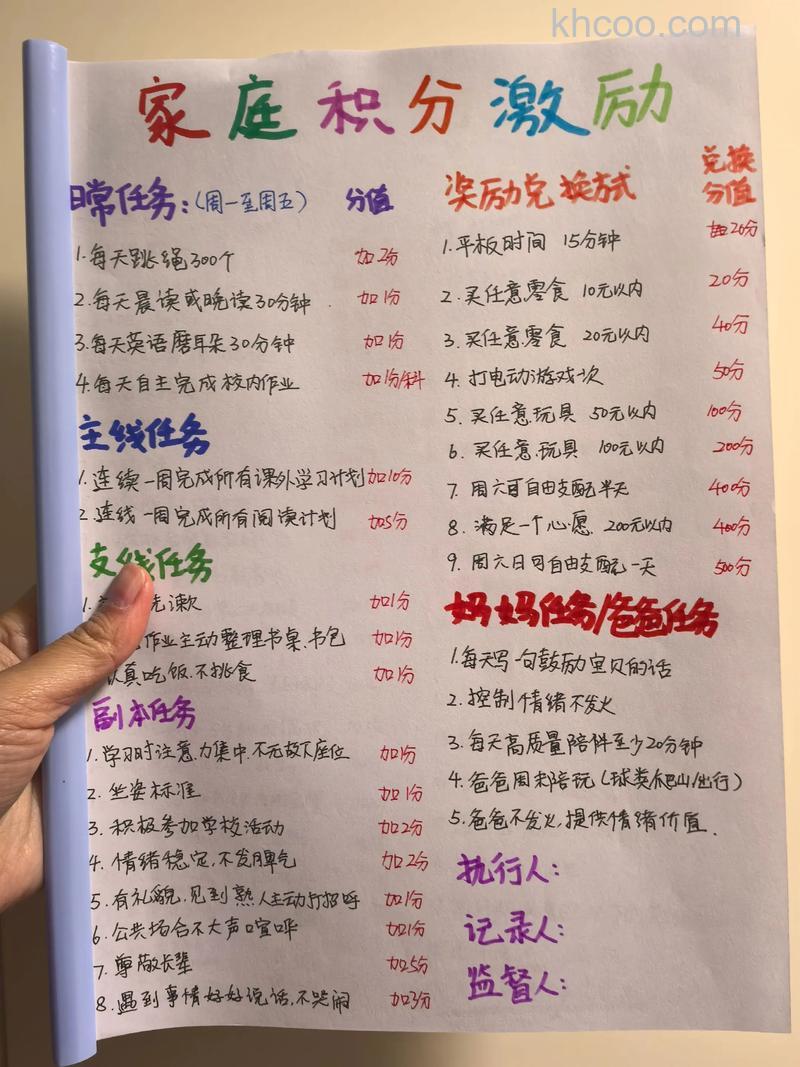 khcoo.com
家庭积分激励
日常任务:(周一至周五) 分值
1.每天跳绳300个 加2分
2.每天晨读或晚读30分钟. 加1分
3.每天英语磨耳朵30分钟 加1分
4.每天自主完成校内作业 加1分/科
主线任务
1.连续一周完成所有课外学习计划 加10分
2.连线一周完成所有阅读计划 加5分
支线任务
1. 洗漱 加1分
作业主动整理书桌、书包 加1分
认真吃饭.不挑食 加1分
副本任务
1.学习时注意力集中.不无故下座位 加1分
2.坐姿标准 加1分
3.积极参加学校活动 加2分
4.情绪稳定,不发脾气 加2分
5.有礼貌,见到熟人主动打招呼 加1分
6.公共场合不大声喧哗 加1分
7.尊敬长辈 加5分
8.遇到事情好好说话,不哭闹 加3分
奖励兑换方式 兑换分值
1.平板时间 15分钟 20分
2.买任意零食 10元以内 20分
3.买任意零食 20元以内 40分
4.打电动游戏一次 50分
5.买任意玩具 50元以内 100分
6.买任意玩具 100元以内 200分
7.周六可自由支配半天 400分
8.满足一个心愿 200元以内 400分
9.周六日可自由支配一天 500分
妈妈任务/爸爸任务
1.每天写一句鼓励宝贝的话
2.控制情绪不发火
3.每天高质量陪伴至少20分钟
4.爸爸周末陪玩(球类/爬山/出行)
5.爸爸不发火,提供情绪价值.
执行人:
记录人:
监督人: